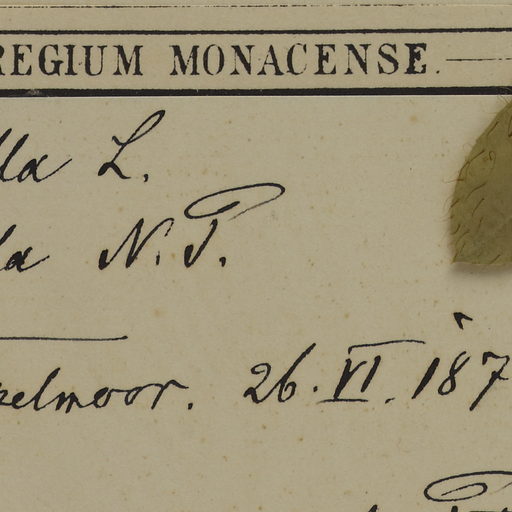 REGIUM MONACENSE.
lla L.
la N.P.
zelmoor. 26. VI. 187